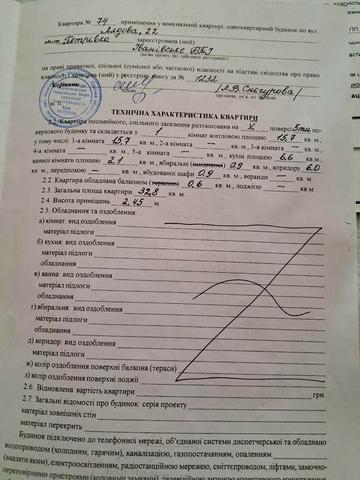 Квартира № 74, приміщення у комунальній квартирі, одноквартирний будинок по вул.
Лядова, 22
смт. Петрівка зареєстрований (ний)
Іванівське БТІ
(назва органу, що здійснив реєстрацію)
на праві приватної, спільної (сумісної або часткової) власності на підставі свідоцтва про право
власності і записана (ний) у реєстрову книгу за № 1232
Керівник
М. П.
(прізвище, ім'я, по батькові)
ТЕХНІЧНА ХАРАКТЕРИСТИКА КВАРТИРИ
2.1. Квартира посімейного, спільного заселення розташована на V поверсі 5ти по-
верхового будинку та складається з 1 кімнат житловою площею 15,7 кв. м.,
у тому числі 1-а кімната 15,7 кв. м., 2-а кімната — кв. м., 3-я кімната — кв. м.,
4-а кімната — кв. м., 5-а кімната — кв. м., кухні площею 6.6 кв. м.,
ванної кімнати площею 2.1 кв. м., вбиральні (поєднаної) 0,9 кв. м., коридору 6.0
кв. м., передпокою — кв. м., вбудованої шафи 0,9 кв. м., веранди — кв. м.
2.2. Квартира обладнана балконом (терасою) 0,6 кв. м., лоджією — кв. м.
2.3. Загальна площа квартири 32,8 кв. м.
2.4. Висота приміщень 2.45 м.
2.5. Обладнання та оздоблення
а) кімнат: вид оздоблення
матеріал підлоги
б) кухня: вид оздоблення
матеріал підлоги
обладнання
в) ванна: вид оздоблення
матеріал підлоги
обладнання
г) вбиральня: вид оздоблення
матеріал підлоги
обладнання
д) коридор: вид оздоблення
матеріал підлоги
ж) колір оздоблення поверхні балкона (тераси)
з) колір оздоблення поверхні лоджії
2.6. Відновлена вартість квартири грн.
2.7. Загальні відомості про будинок: серія проекту
матеріал зовнішніх стін
матеріал перекрить
Будинок підключено до телефонної мережі, об'єднаної системи диспетчерської та обладнано
водопроводом (холодним, гарячим), каналізацією, газопостачанням, опаленням
(вказати яким), електроосвітленням, радіостанційною мережею, сміттєпроводом, ліфтами, замочно-
переговорними пристроями (кодовими замками), телевізійною антеною колективного користування